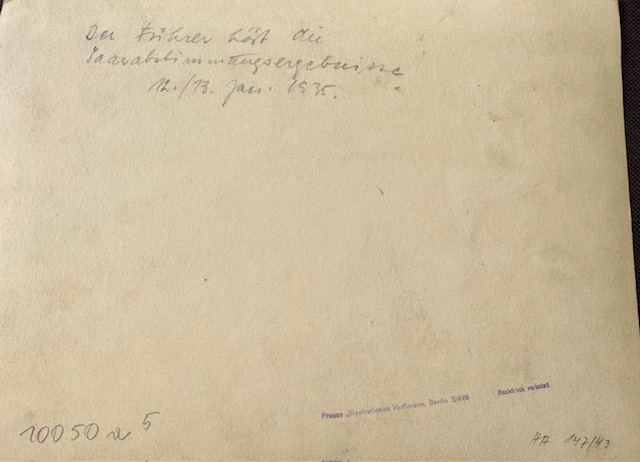 Der Führer hört die
Saarabstimmungsergebnisse
12./13. Jan. 1935.
Presse Illustrationen Hoffmann, Berlin SW68
Nachdruck verboten
10050 a 5
147/43